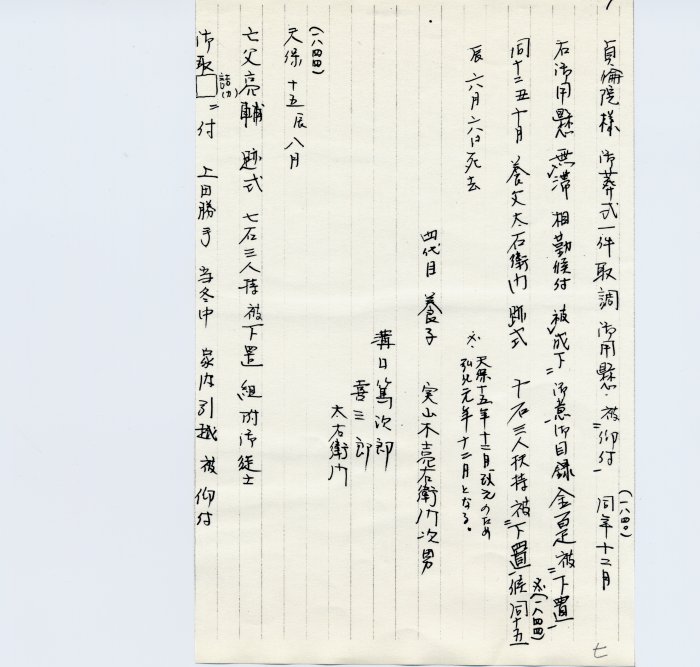 貞倫院様 御葬式一件取調 御用懸被仰付 同年十二月
(一八四〇)
右御用懸無滞相勤候付 被成下御意御目録金百疋被下置
同十二丑十月 養父太右衛門跡式 十石三人扶持被下置候 同十五
※(一八四四)
辰六月六日死去
※天保十五年十二月改元のため
弘化元年十二月となる。
四代目 養子 実山本亮右衛門次男
溝口篤次郎
喜三郎
太右衛門
(一八四四)
天保十五辰八月
亡父亮輔 跡式 七石三人扶持被下置 組附御徒士
御取□ニ付 上田勝手 当冬中 家内引越被仰付
詰(カ)
七